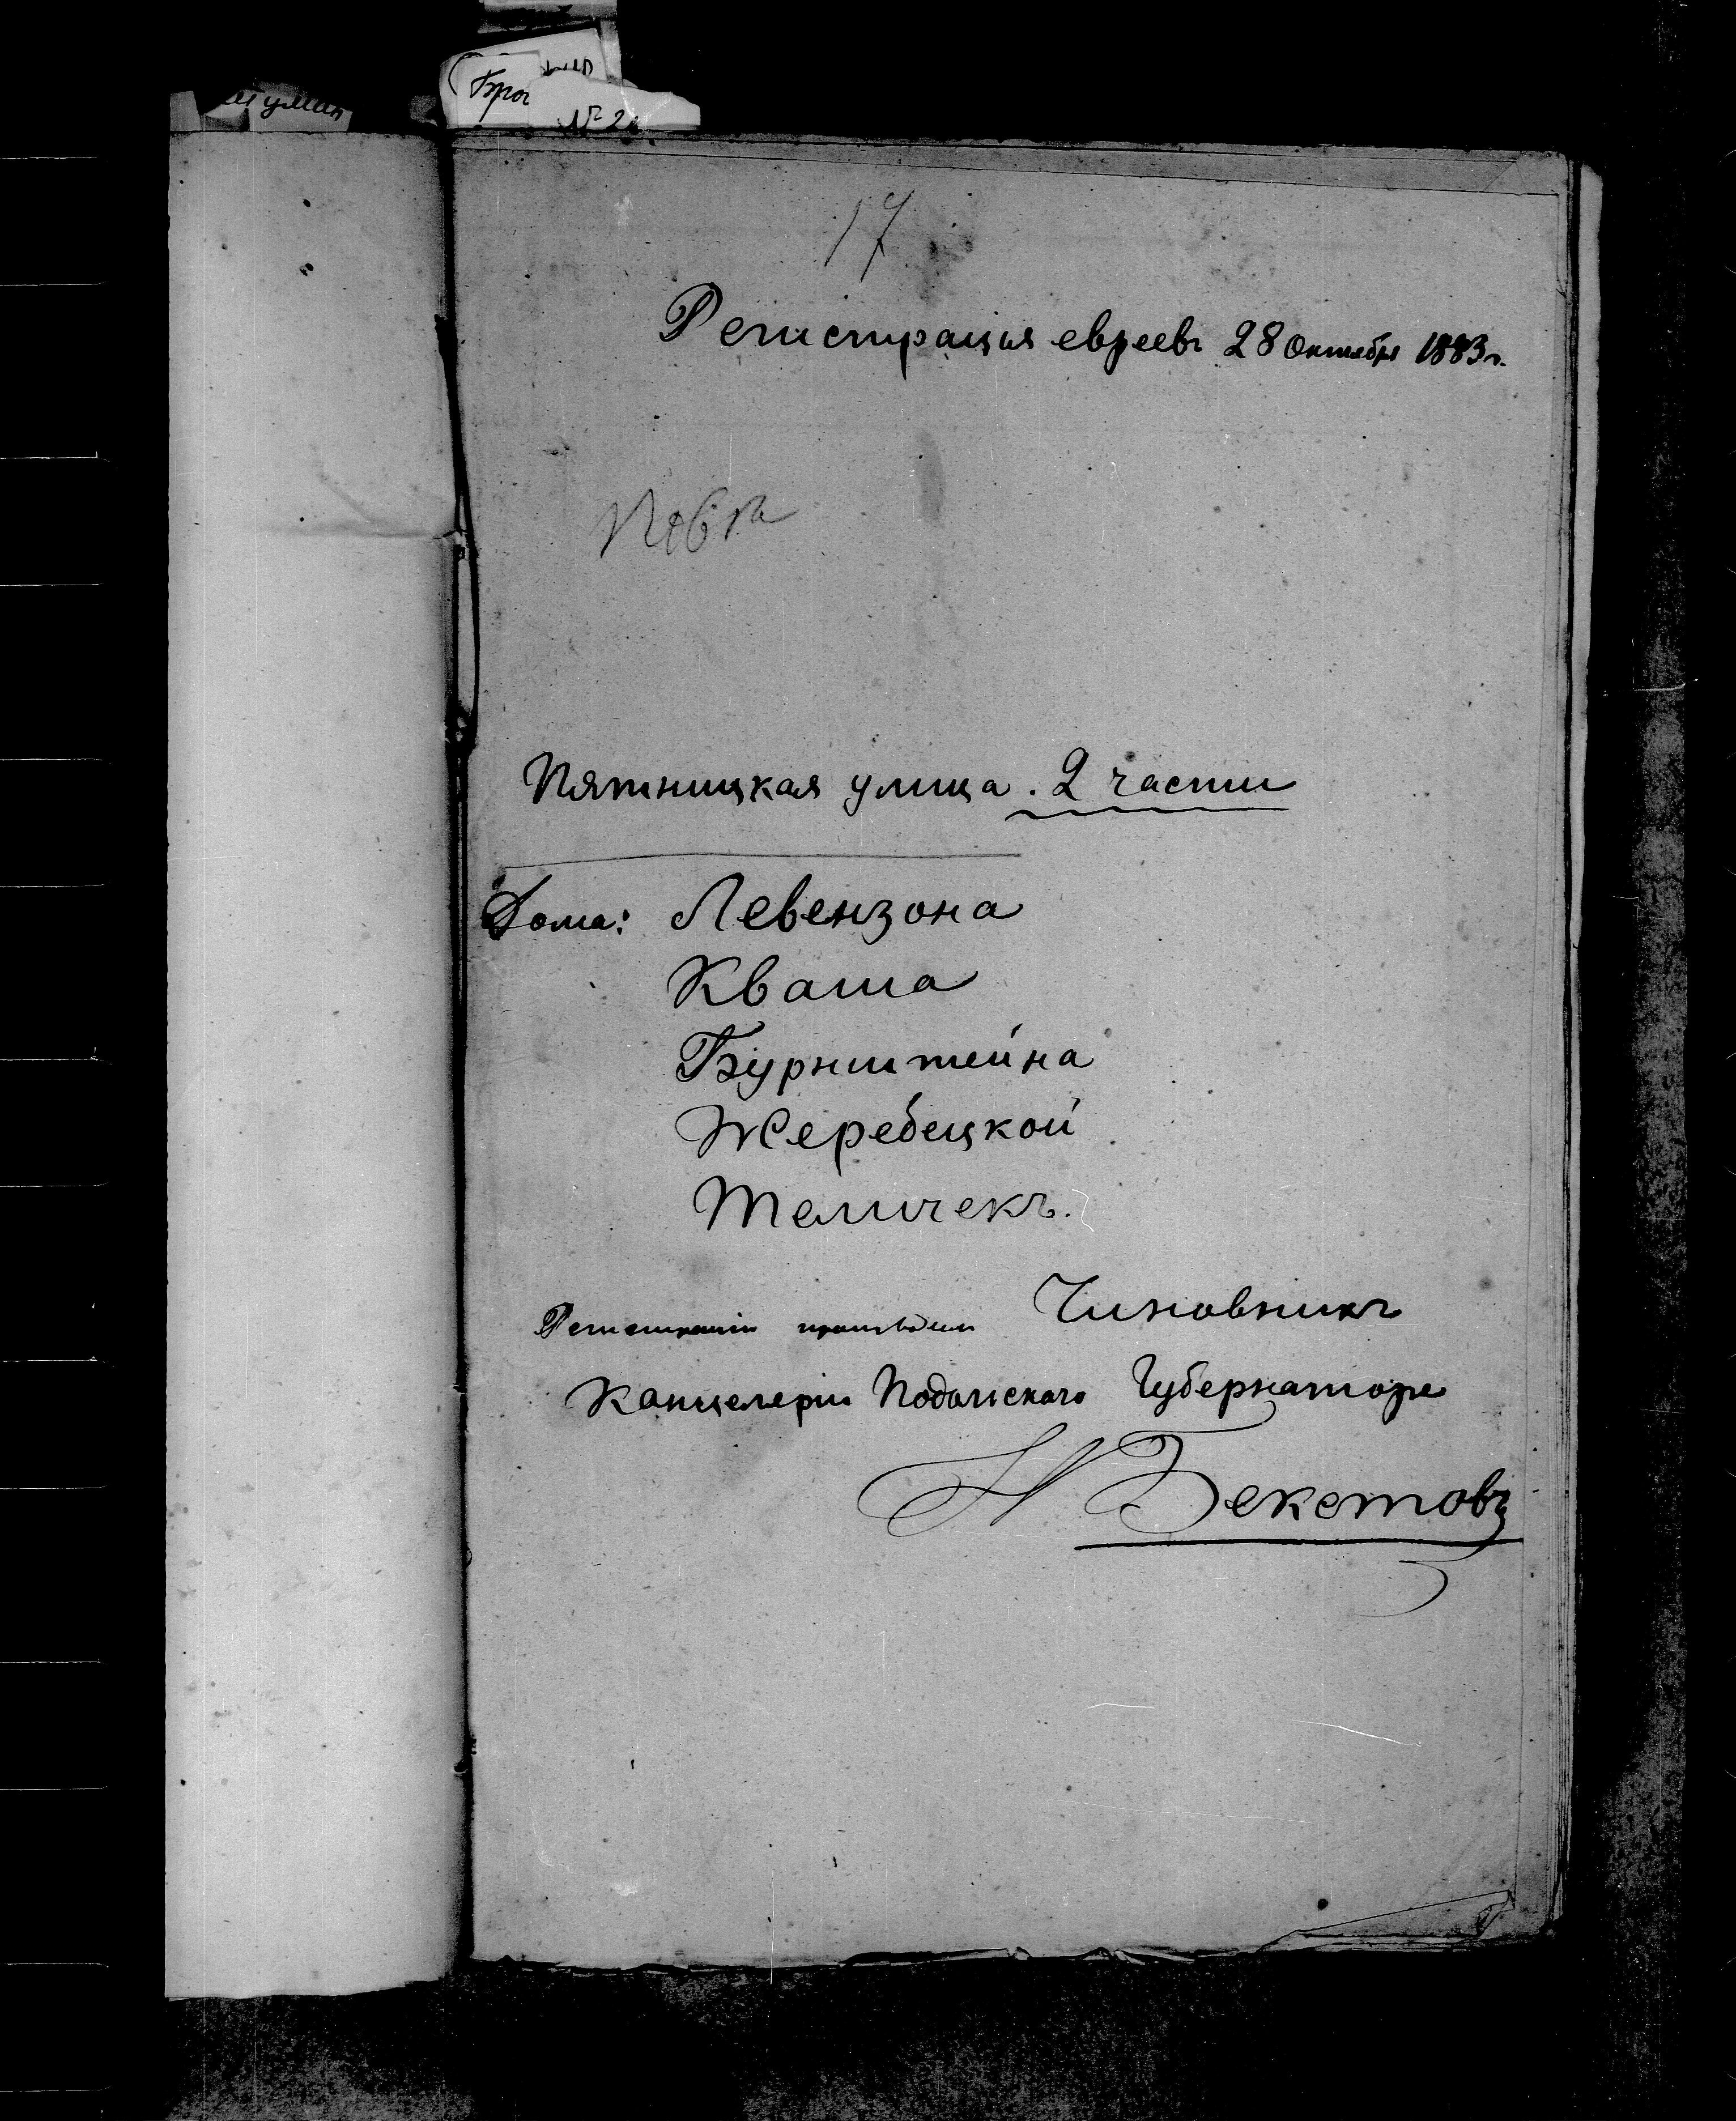 17
Регистрація евреевъ 28 Октября 1883 г.
Пятницкая улица. 2 части
Дома: Левензона
Кваша
Бурнштейна
Жеребецкой
Теличекъ.
Регистрацію производилъ Чиновникъ
Канцеляріи Подольскаго Губернатора
Н Бекетовъ